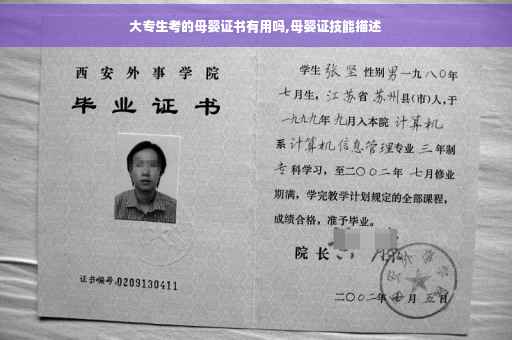 大专生考的母婴证书有用吗,母婴证技能描述
西安外事学院
毕业证书
证书编号:0209130411
学生 张坚 性别 男 一九八〇年
七月生, 江苏省 苏州 县(市)人,于
一九九九年 九月入本院 计算机
系 计算机信息管理 专业 三 年制
专 科学习, 至二〇〇二年 七月修业
期满, 学完教学计划规定的全部课程,
成绩合格, 准予毕业。
院长
二〇〇二年 月 五 日